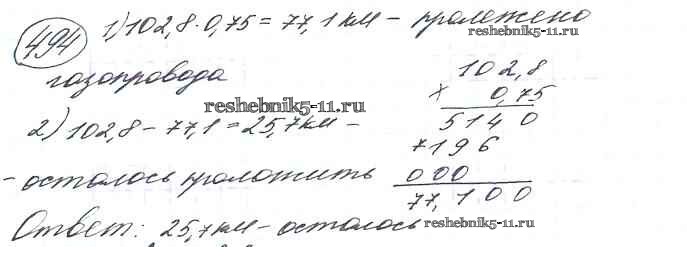 494 1) 102,8 · 0,75 = 77,1 км – проложено
reshebnik5-11.ru
газопровода
102,8
× 0,75
reshebnik5-11.ru
2) 102,8 – 77,1 = 25,7 км –
5140
7196
– осталось проложить
000
77,100
Ответ: 25,7 км – осталось
reshebnik5-11.ru